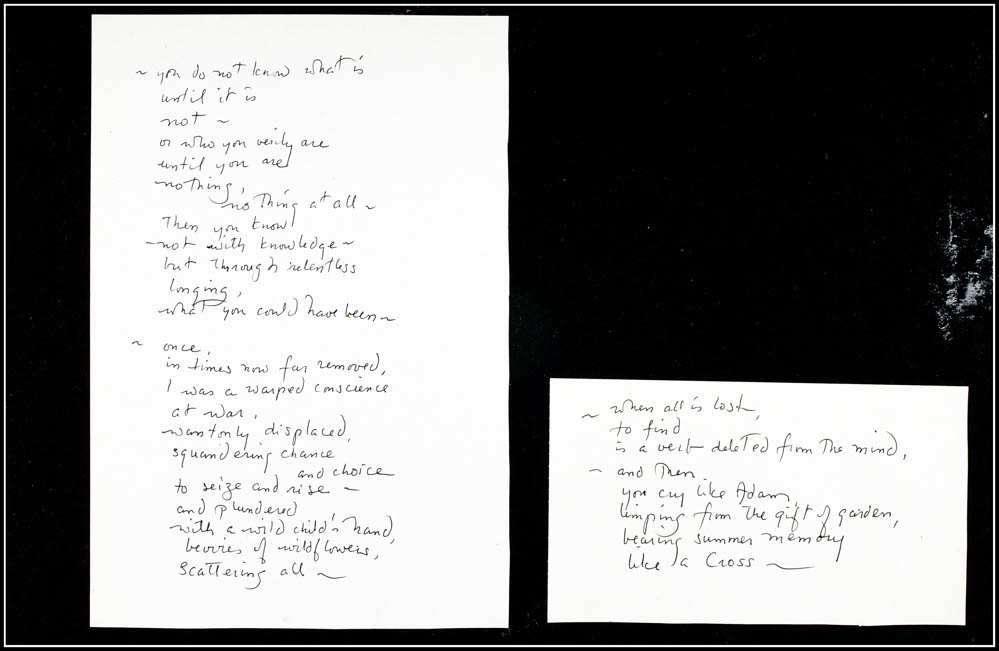 ~ you do not know what is
until it is
not ~
or who you verily are
until you are
nothing,
nothing at all ~
Then you know
~ not with knowledge ~
but through relentless
longing,
what you could have been ~
~ once,
in times now far removed,
I was a warped conscience
at war,
wantonly displaced,
squandering chance
and choice
to seize and rise ~
and plundered
with a wild child's hand,
bevies of wildflowers,
scattering all ~
~ when all is lost,
to find
is a verb deleted from the mind,
~ and Then
you cry like Adam,
limping from the gift of garden,
bearing summer memory
like a Cross ~